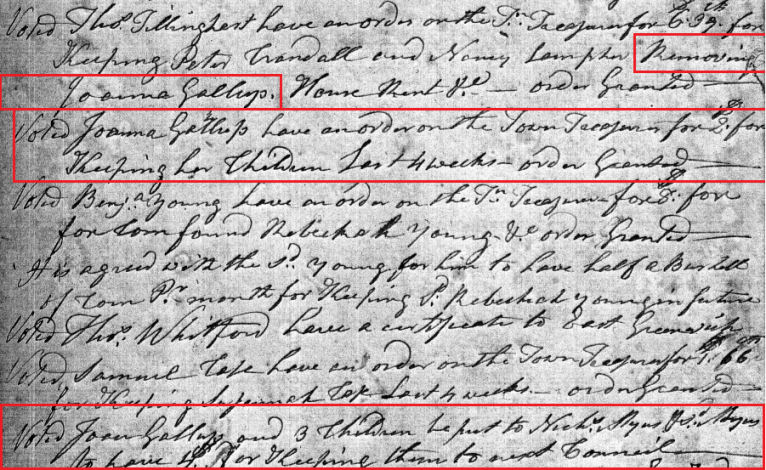 Voted Thos. Tillinghast have an order on the Tn. Treasurer for 6.39. for
Keeping Peter Crandall and Nancy Lanpher Removing
Joanna Gallup. House Rent &c — order Granted —
Voted Joanna Gallup have an order on the Town Treasurer for 2. for
Keeping her Children Last 4 weeks — order Granted —
Voted Benja. Young have an order on the Tn. Treasurer for 3. for
for Corn found Rebeckah Young &c order Granted —
It is agreed with the Sd. Young for him to have half a Bushell
of Corn Pr. month for Keeping Rebeckah Young in future
Voted Thos. Whitford have a certificate to East Greenwich
Voted Samuel have an order on the Town Treasurer for 1.66
for Keeping Last 4 weeks — order Granted —
Voted Joan Gallup and 3 Children be put to Nichs.
to have for Keeping them to next Council —